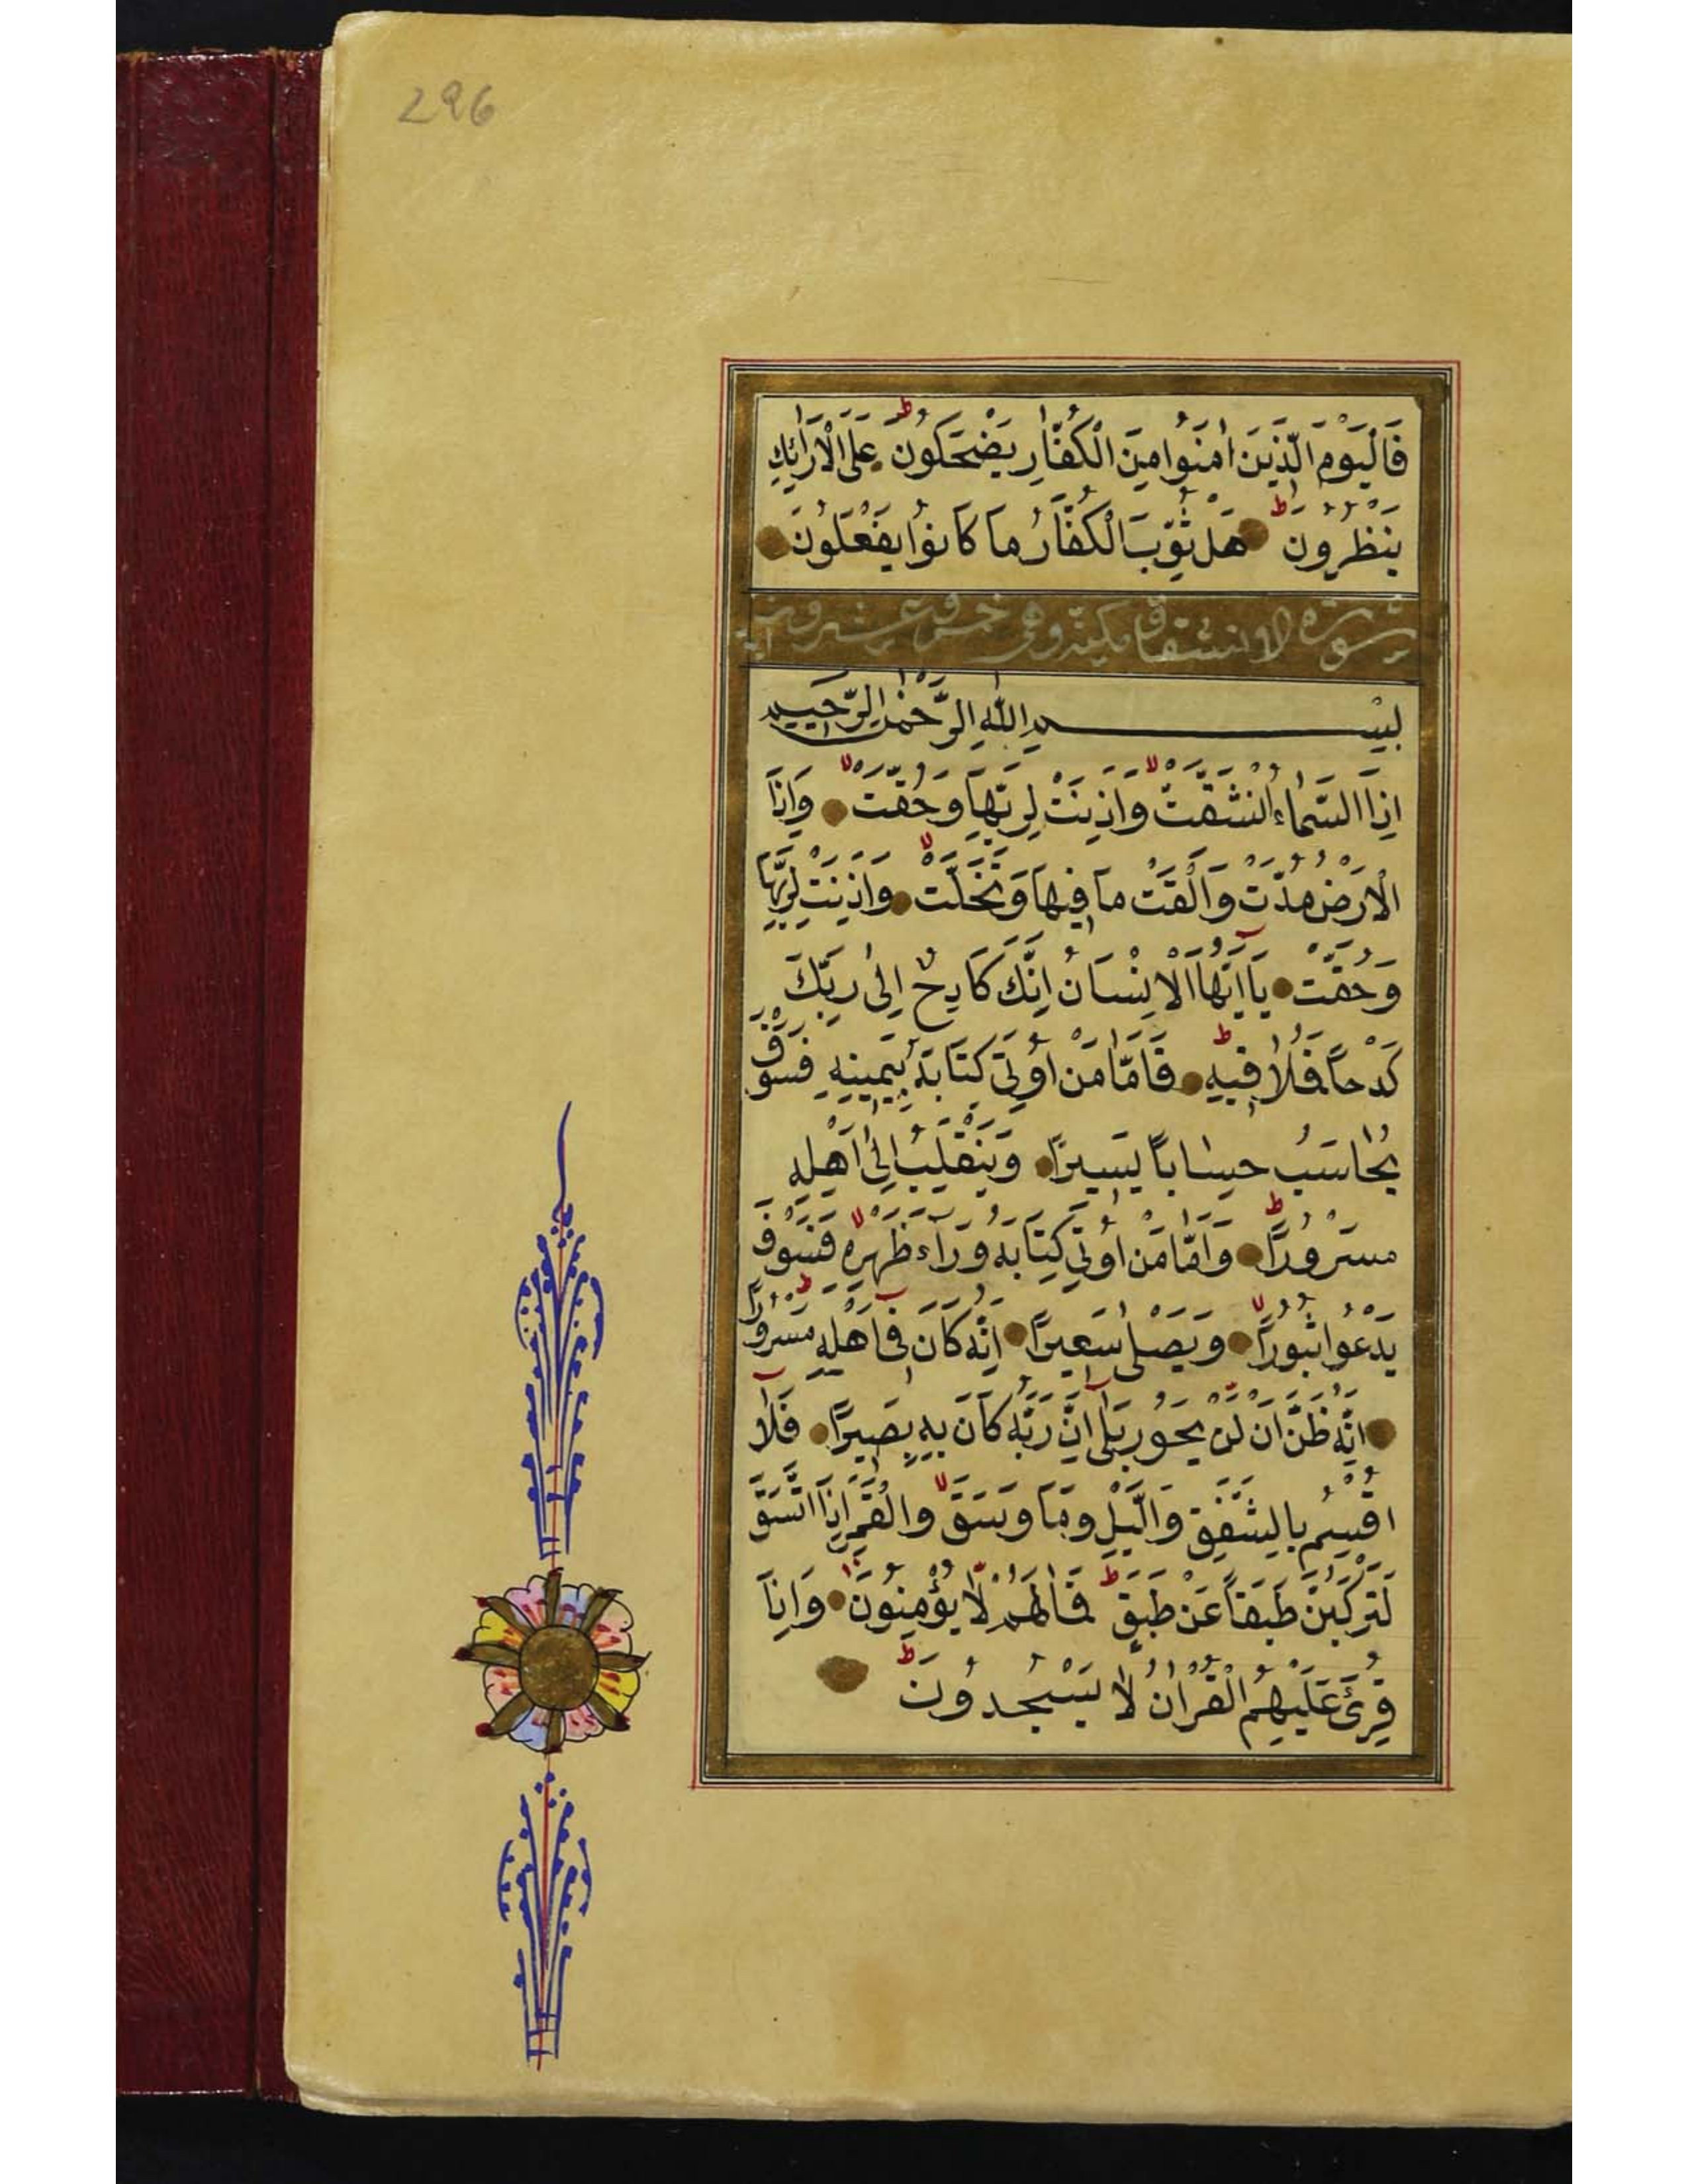 296
فَالْيَوْمَ الَّذِينَ اٰمَنُوا مِنَ الْكُفَّارِ يَضْحَكُونَ عَلَى الْاَرَائِكِ
يَنْظُرُونَ هَلْ ثُوِّبَ الْكُفَّارُ مَا كَانُوا يَفْعَلُونَ
سورة الانشقاق مكية وهى خمس وعشرون اية
بِسْمِ اللّٰهِ الرَّحْمٰنِ الرَّحِيمِ
اِذَا السَّمَاءُ انْشَقَّتْ وَاَذِنَتْ لِرَبِّهَا وَحُقَّتْ وَاِذَا
الْاَرْضُ مُدَّتْ وَاَلْقَتْ مَا فِيهَا وَتَخَلَّتْ وَاَذِنَتْ لِرَبِّهَا
وَحُقَّتْ يَا اَيُّهَا الْاِنْسَانُ اِنَّكَ كَادِحٌ اِلٰى رَبِّكَ
كَدْحًا فَمُلَاقِيهِ فَاَمَّا مَنْ اُوتِىَ كِتَابَهُ بِيَمِينِهِ فَسَوْفَ
يُحَاسَبُ حِسَابًا يَسِيرًا وَيَنْقَلِبُ اِلٰى اَهْلِهِ
مَسْرُورًا وَاَمَّا مَنْ اُوتِىَ كِتَابَهُ وَرَاءَ ظَهْرِهِ فَسَوْفَ
يَدْعُوا ثُبُورًا وَيَصْلٰى سَعِيرًا اِنَّهُ كَانَ فِى اَهْلِهِ مَسْرُورًا
اِنَّهُ ظَنَّ اَنْ لَنْ يَحُورَ بَلٰى اِنَّ رَبَّهُ كَانَ بِهِ بَصِيرًا فَلَا
اُقْسِمُ بِالشَّفَقِ وَالَّيْلِ وَمَا وَسَقَ وَالْقَمَرِ اِذَا اتَّسَقَ
لَتَرْكَبُنَّ طَبَقًا عَنْ طَبَقٍ فَمَا لَهُمْ لَا يُؤْمِنُونَ وَاِذَا
قُرِئَ عَلَيْهِمُ الْقُرْاٰنُ لَا يَسْجُدُونَ